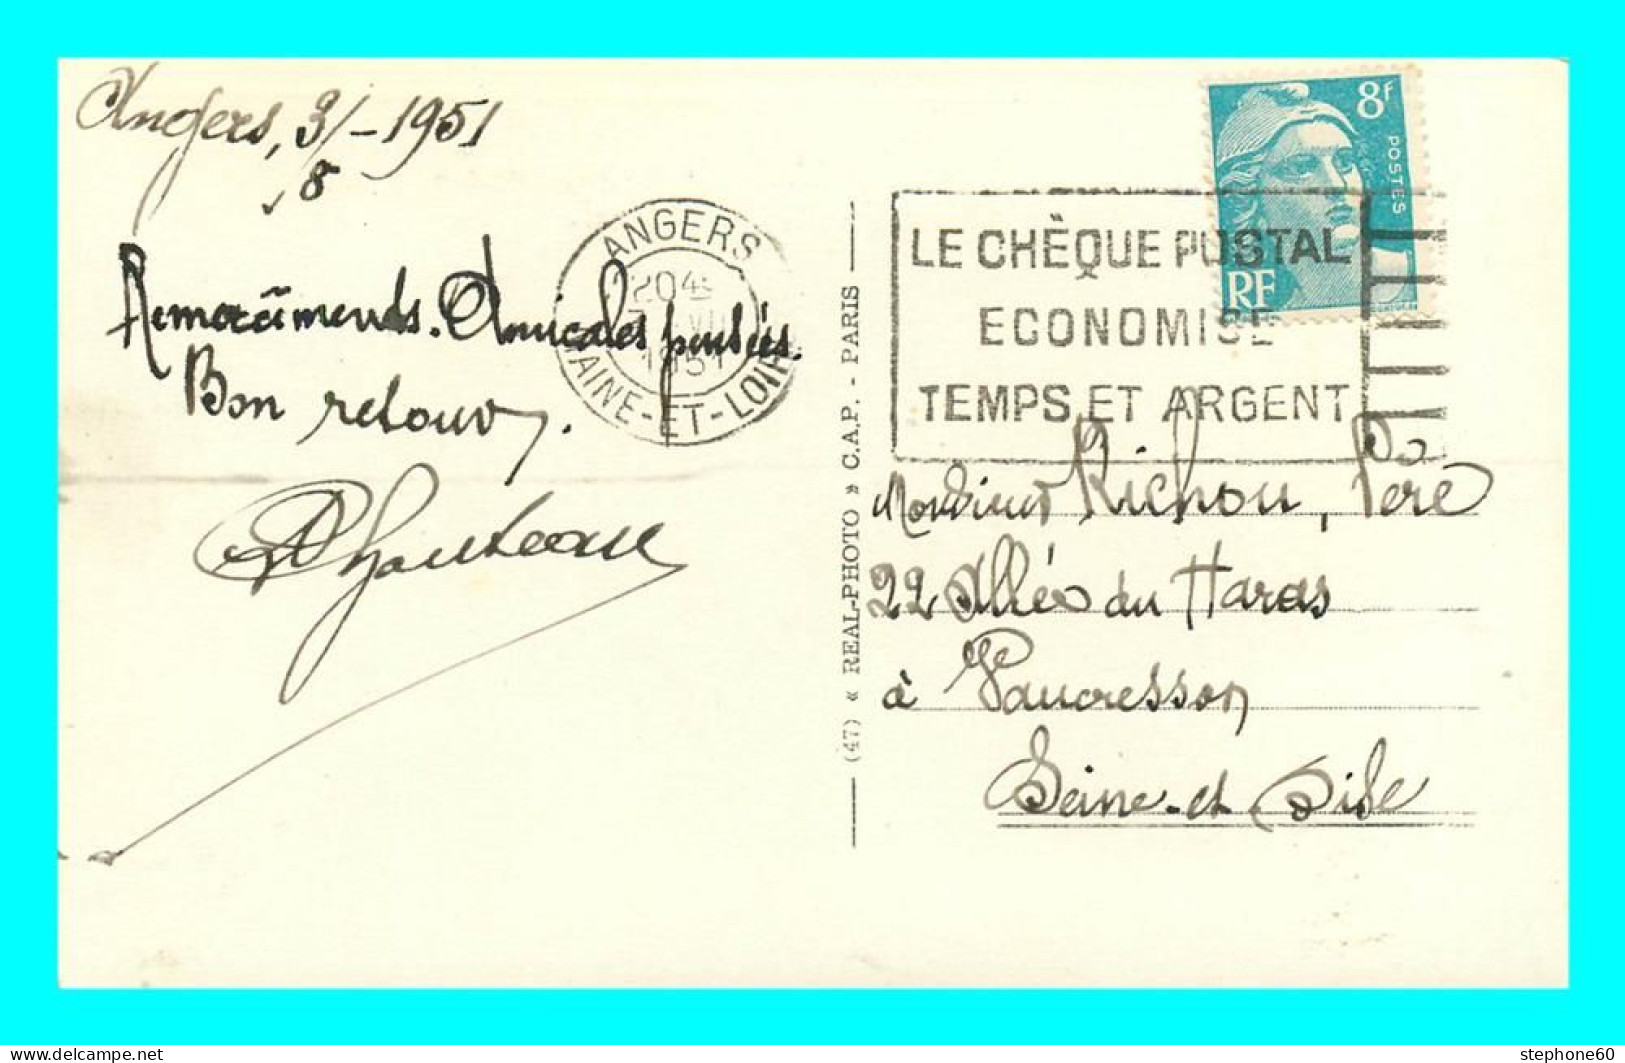 Angers, 3/-1951
8
Remerciements. Amicales pensées.
Bon retour.
ANGERS
20 45
1951
MAINE-ET-LOIRE
(47) « REAL-PHOTO » C.A.P. - PARIS
8f
POSTES
RF
LE CHÈQUE POSTAL
ECONOMISE
TEMPS ET ARGENT
Monsieur Richou, Père
22 Allée du Haras
à Vaucresson
Seine-et Oise
stephone60